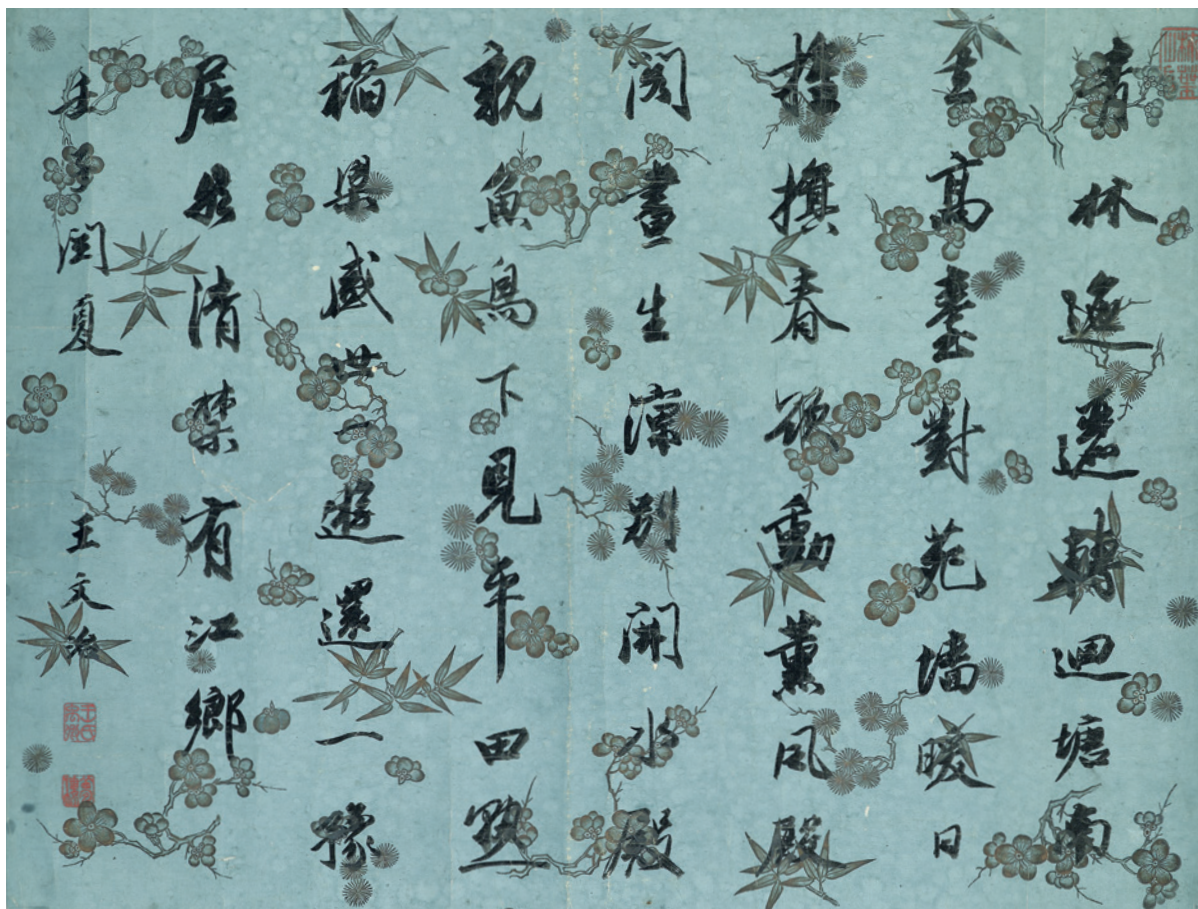 青林迤邐轉迴塘南
去高臺對苑墻暖日
旌旗春欲動薰風殿
閣晝生涼別開水殿
親魚鳥下見平田熟
稻粱盛世一遊還一豫
居然清禁有江鄉
壬子閏夏 王文治